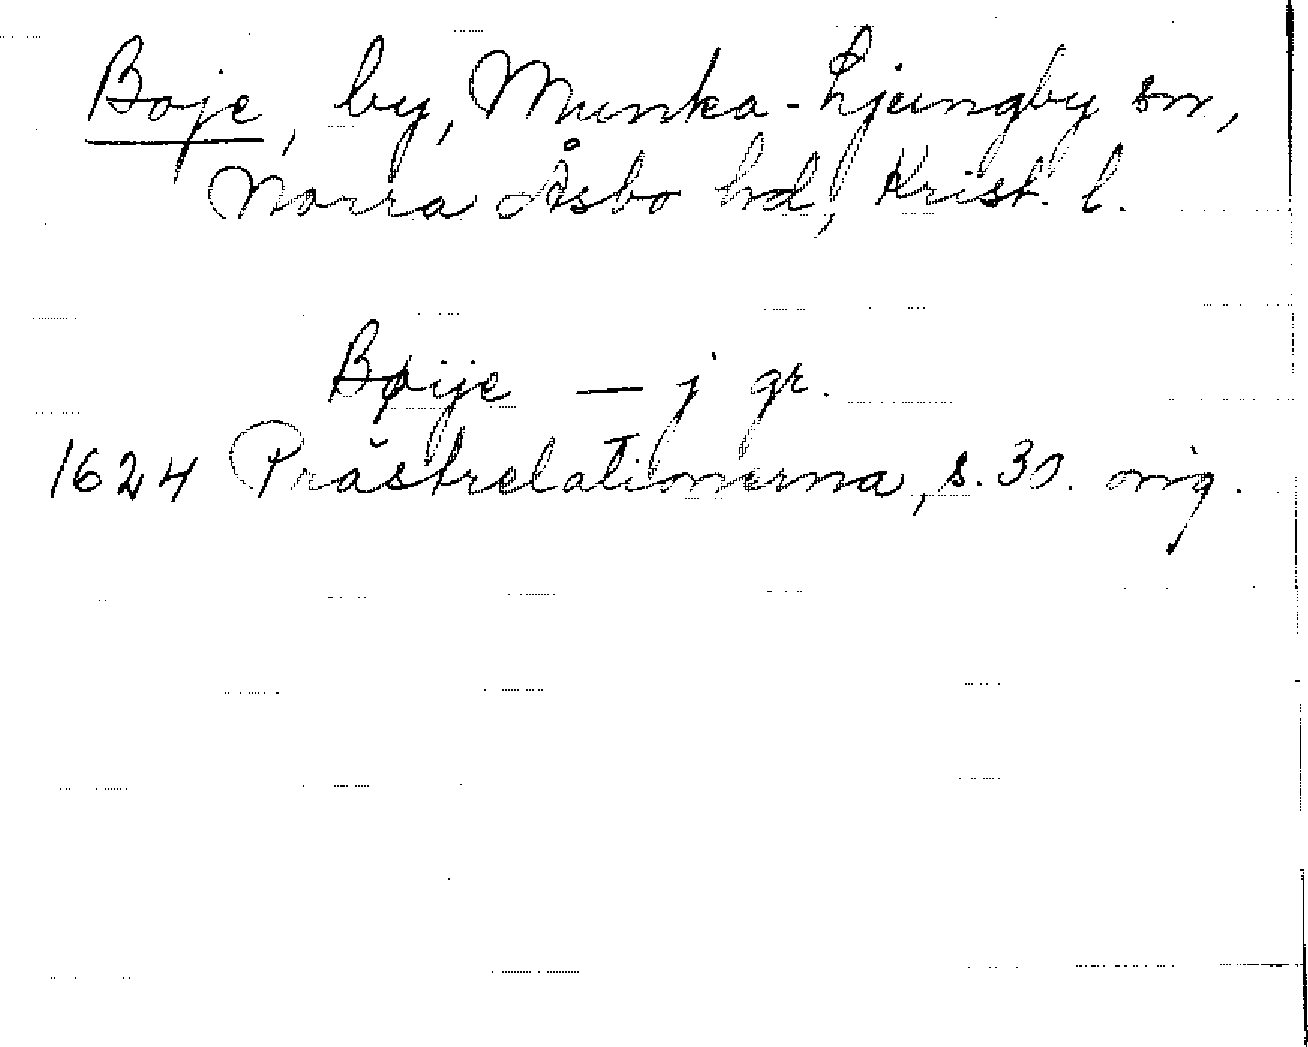 Boje, by, Munka-Ljungby sn,
Norra Åsbo hd, Krist. l.
Bøije — j gr.
1624 Prästrelationerna, s. 30. orig.